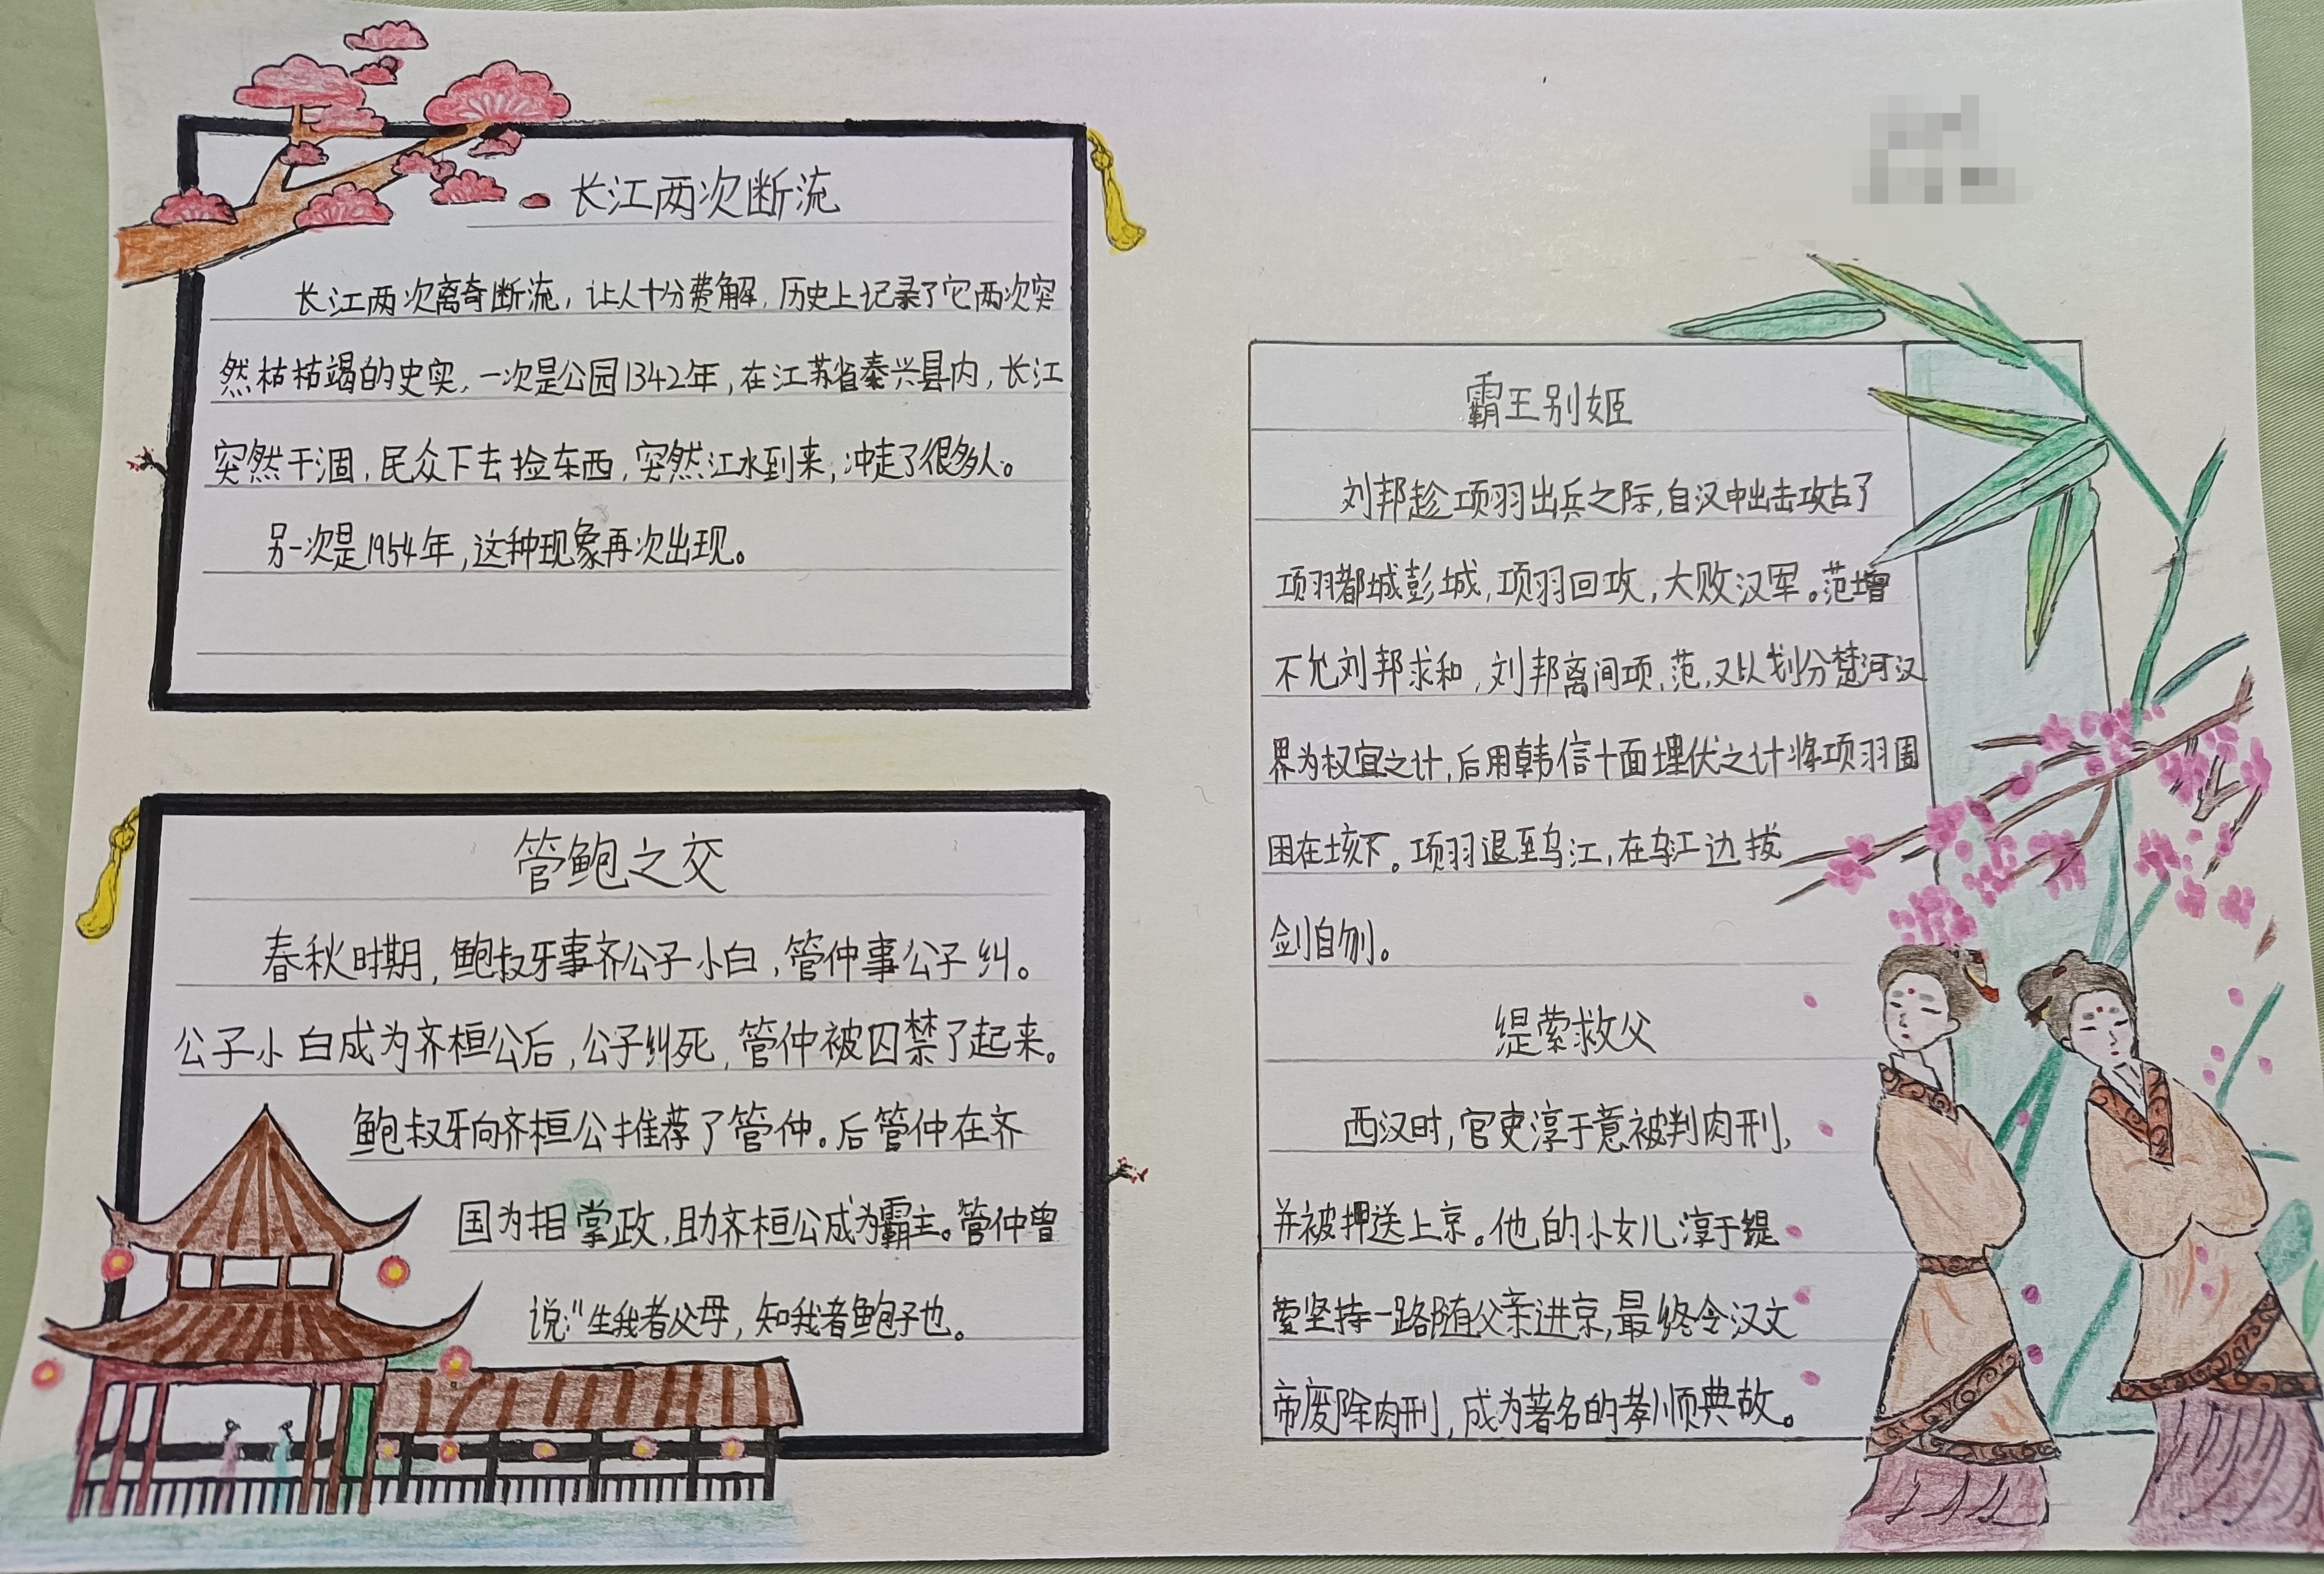 长江两次断流
长江两次离奇断流，让人十分费解，历史上记录了它两次突
然枯枯竭的史实，一次是公园1342年，在江苏省秦兴县内，长江
突然干涸，民众下去捡东西，突然江水到来，冲走了很多人。
另一次是1954年，这种现象再次出现。
管鲍之交
春秋时期，鲍叔牙事齐公子小白，管仲事公子纠。
公子小白成为齐桓公后，公子纠死，管仲被囚禁了起来。
鲍叔牙向齐桓公推荐了管仲。后管仲在齐
国为相掌政，助齐桓公成为霸主。管仲曾
说："生我者父母，知我者鲍子也。
霸王别姬
刘邦趁项羽出兵之际，自汉中出击攻占了
项羽都城彭城，项羽回攻，大败汉军。范增
不允刘邦求和，刘邦离间项，范，又以划分楚河汉
界为权宜之计，后用韩信十面埋伏之计将项羽围
困在垓下。项羽退至乌江，在乌江边拔
剑自刎。
缇萦救父
西汉时，官吏淳于意被判肉刑，
并被押送上京。他的小女儿淳于缇
萦坚持一路随父亲进京，最终令汉文
帝废除肉刑，成为著名的孝顺典故。